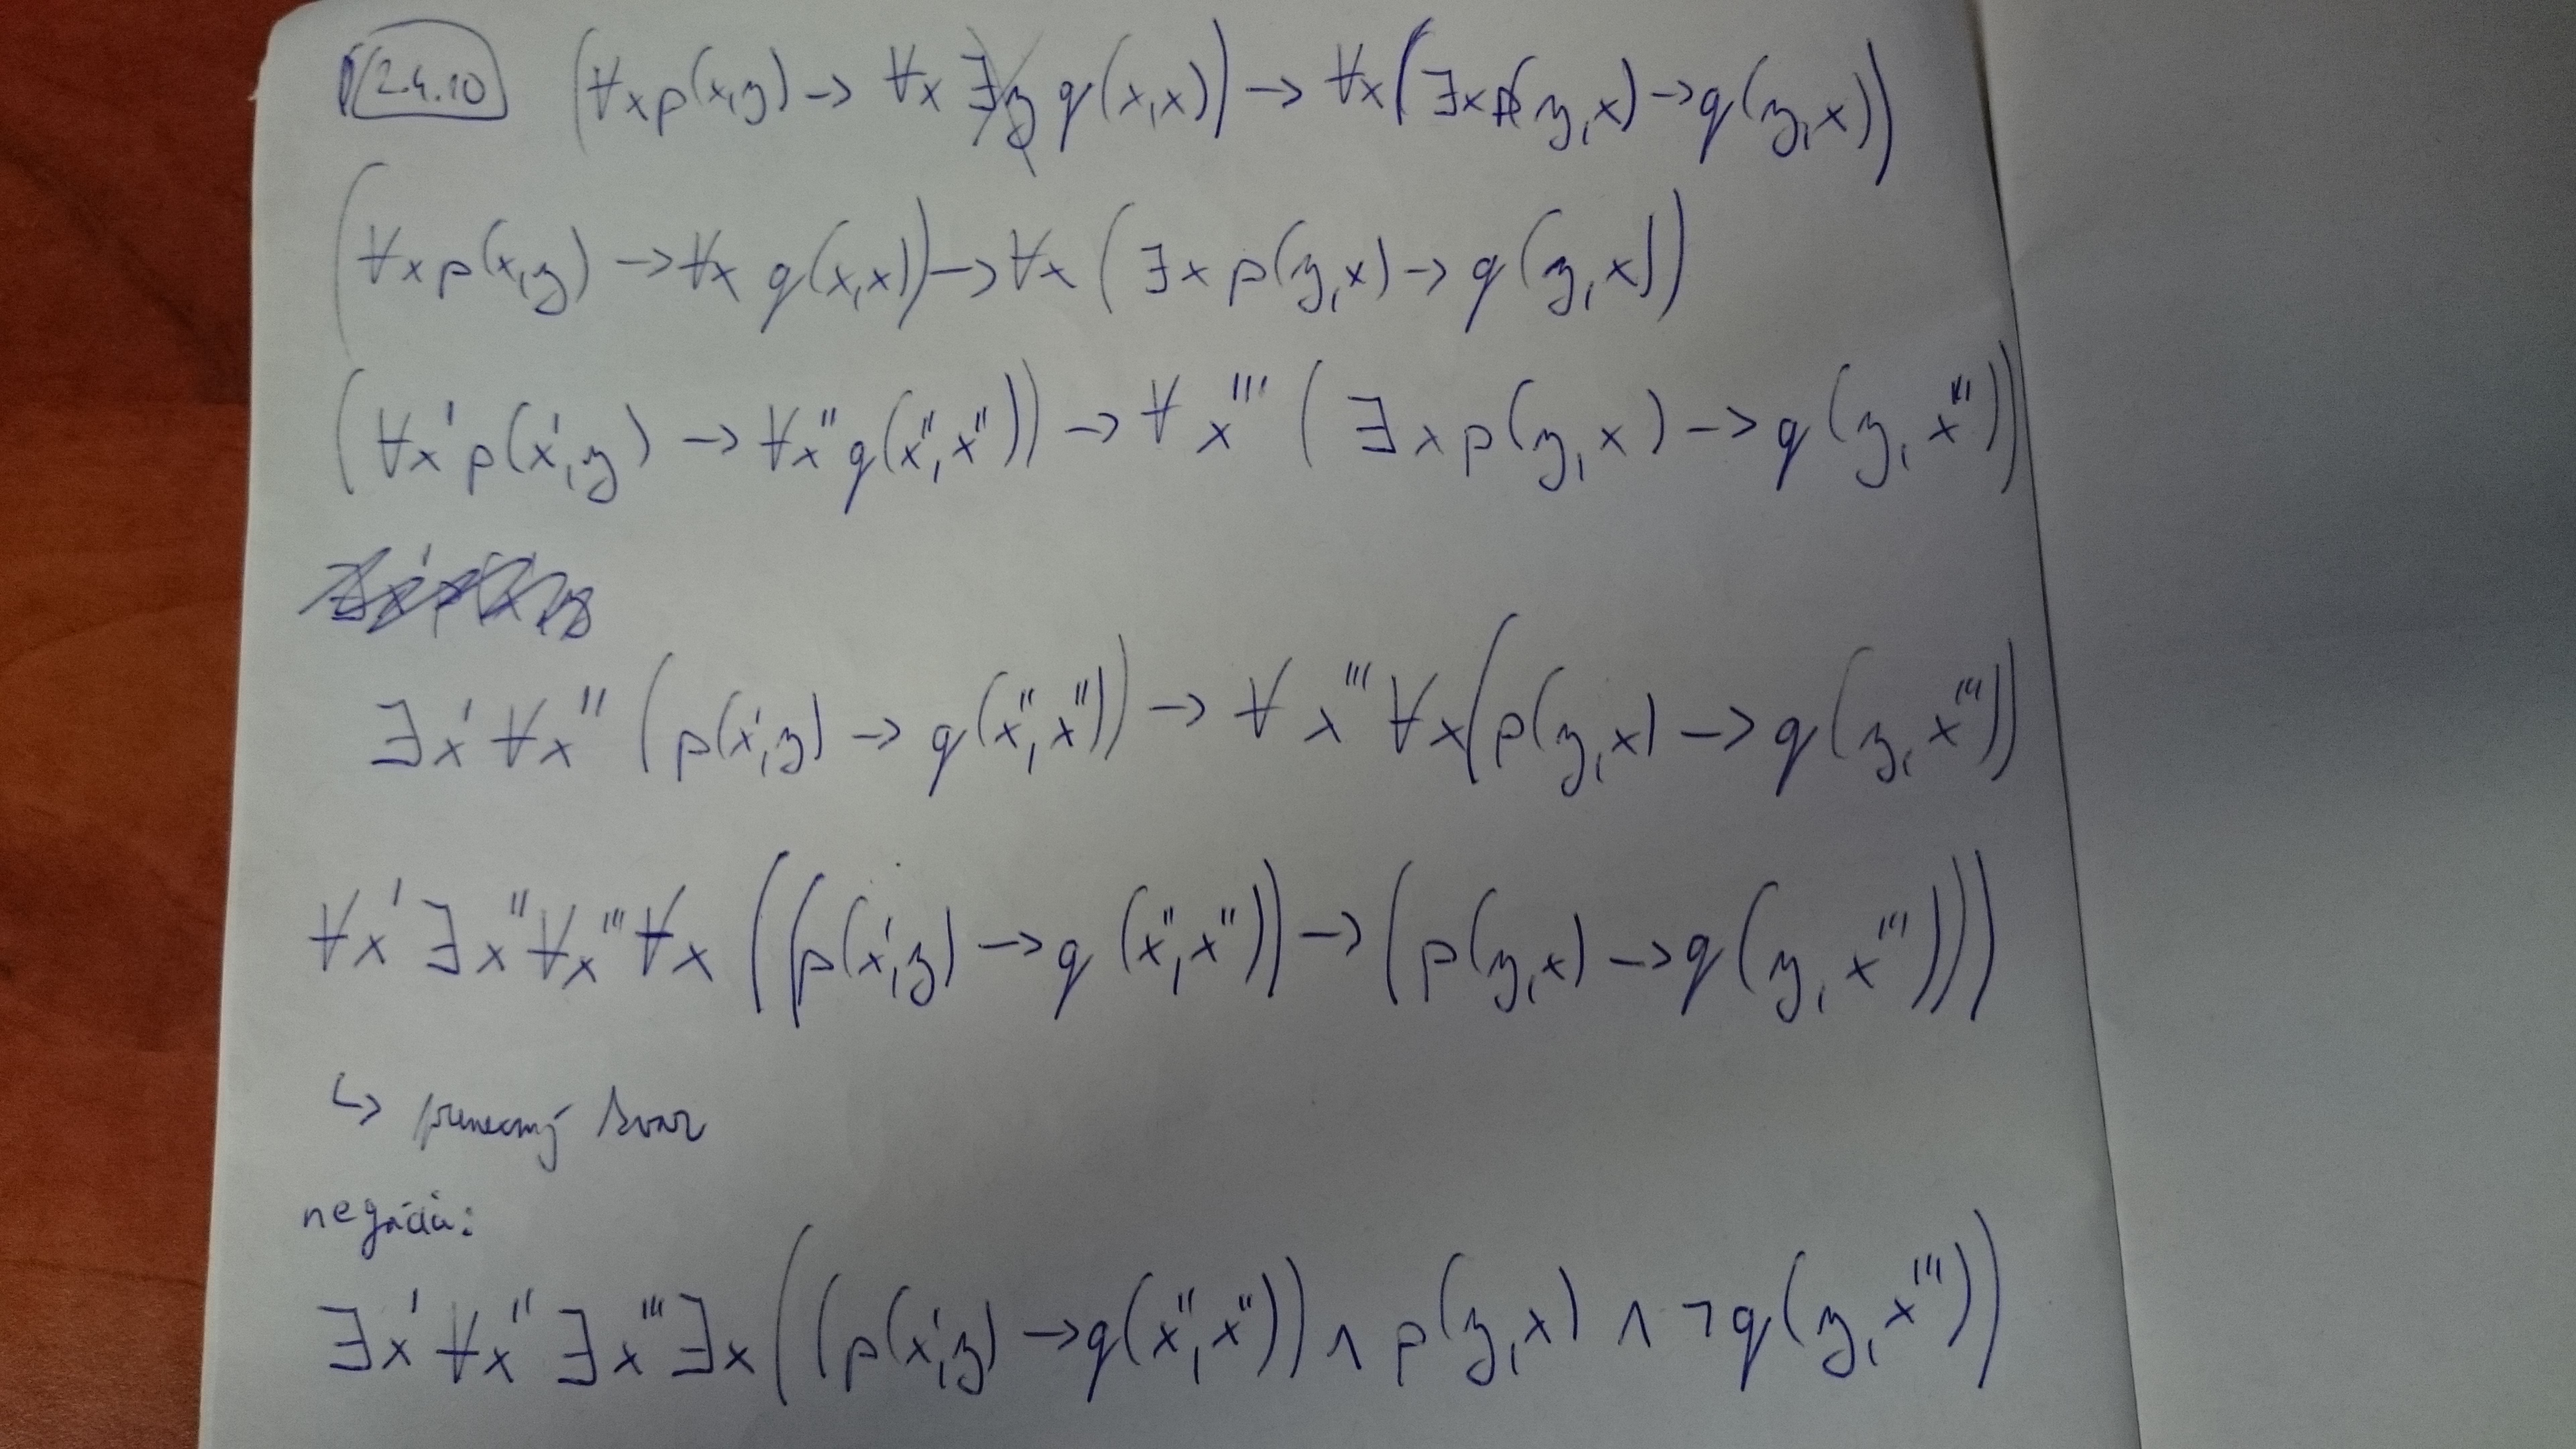 2.4.10 (∀x p(x,y) → ∀x q(x,x)) → ∀x (∃x p(y,x) → q(y,x))
(∀x p(x,y) → ∀x q(x,x)) → ∀x (∃x p(y,x) → q(y,x))
(∀x' p(x',y) → ∀x'' q(x'',x'')) → ∀x''' (∃x p(y,x) → q(y,x'''))
∃x' ∀x'' (p(x',y) → q(x'',x'')) → ∀x''' ∀x (p(y,x) → q(y,x'''))
∀x' ∃x'' ∀x''' ∀x ((p(x',y) → q(x'',x'')) → (p(y,x) → q(y,x''')))
↳ prenexný tvar
negácia:
∃x' ∀x'' ∃x''' ∃x ((p(x',y) → q(x'',x'')) ∧ p(y,x) ∧ ¬q(y,x'''))